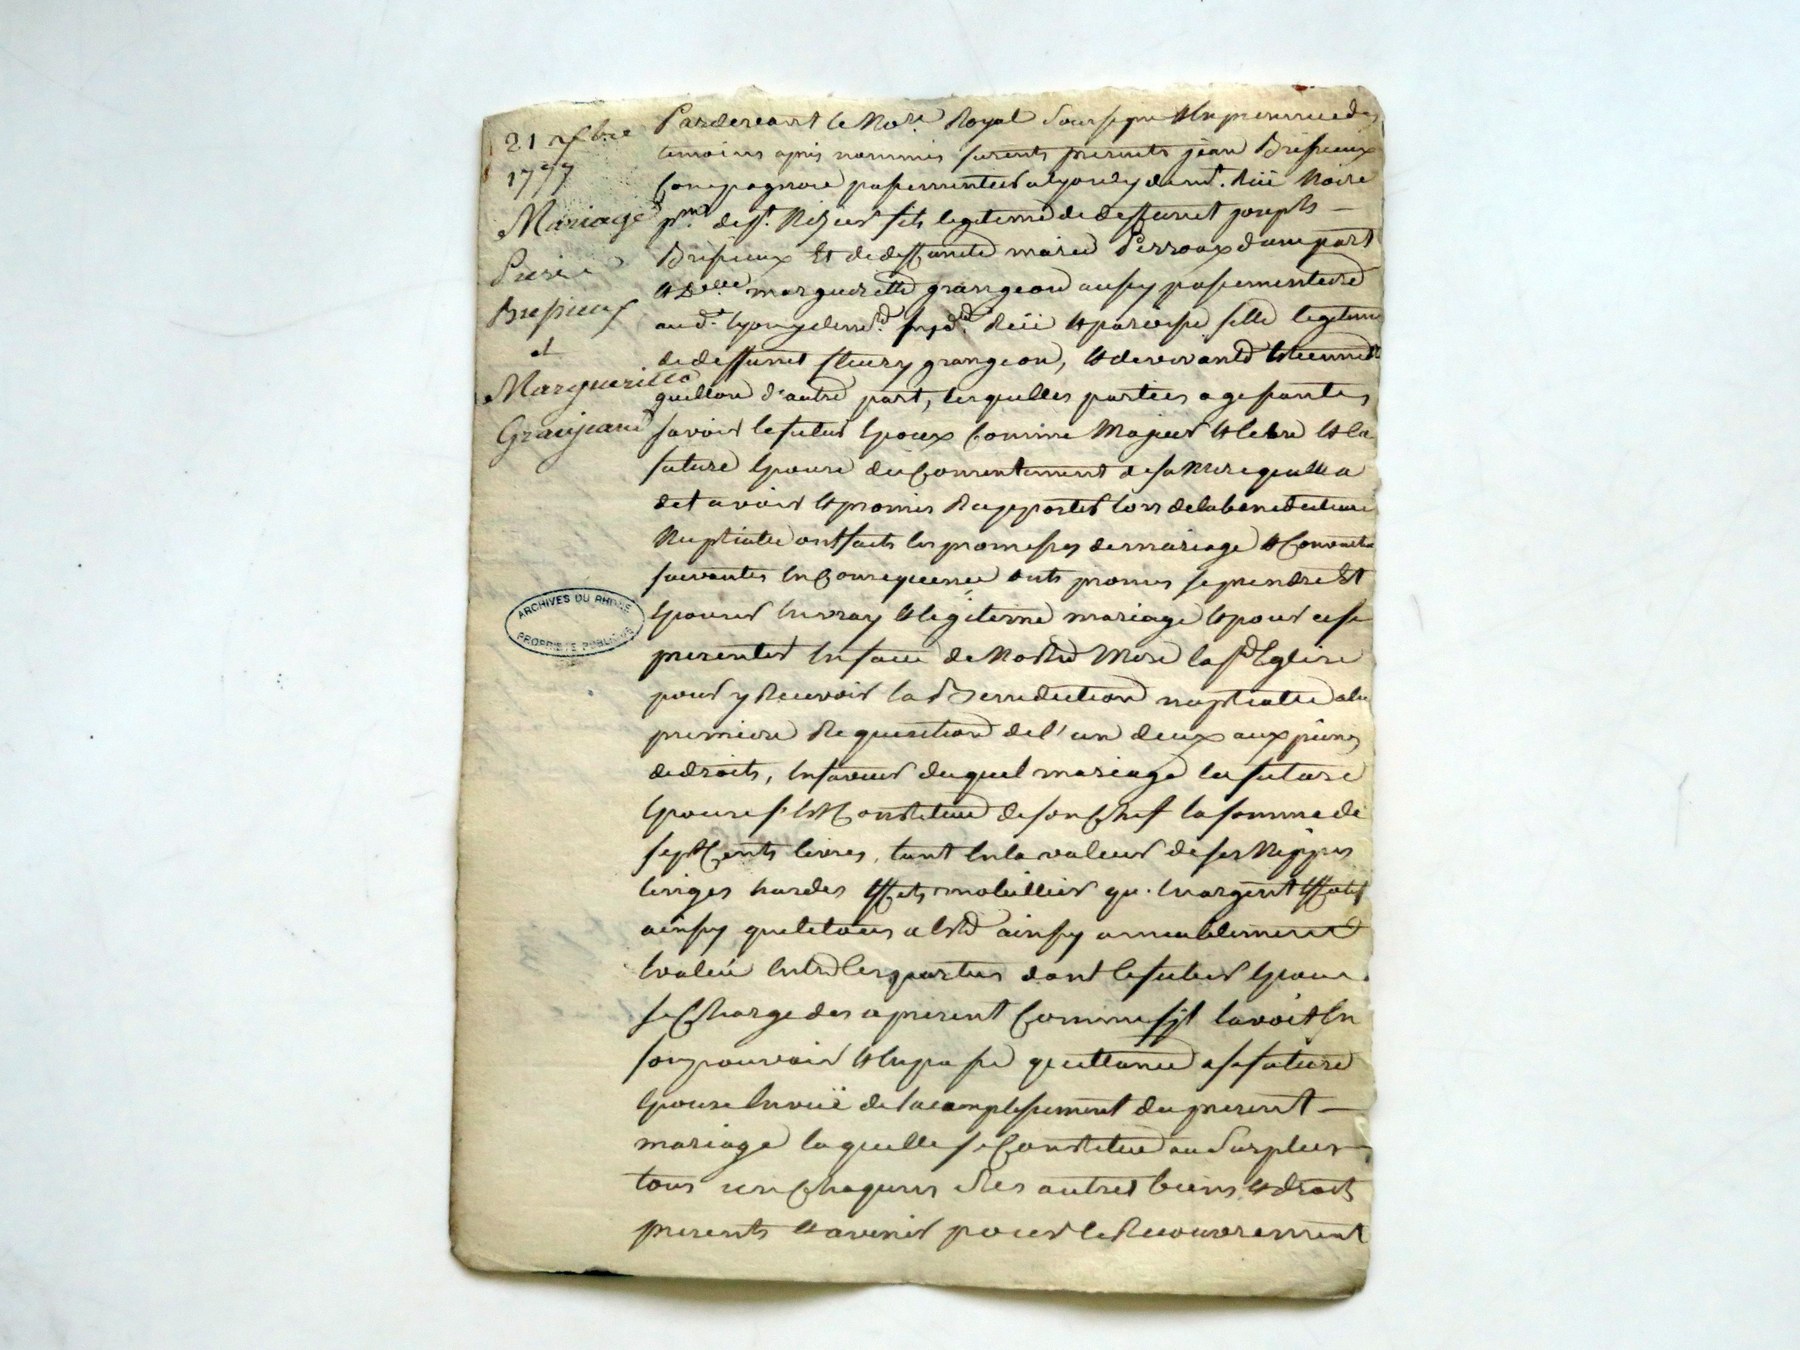 21 9bre
1777
Mariage
Pierre
Brepieux
et
Margueritte
Granjeand
ARCHIVES DU RHÔNE
PROPRIÉTÉ PUBLIQUE
Pardevant le No.re Royal soussigne & en presence des
temoins apres nommés furents presents jean Brissieux
Compagnon passementier a lyon y demt. Rüe Noire
psse. de st. Nizier fils legitime de deffunt joseph
Brissieux Et de deffunte marie Perroux d'une part
& Delle margueritte grangeon aussy passementiere
aud. lyon y demt. susd. Rüe & paroisse fille legitime
de deffunt fleury grangeon, & de vivante Etiennette
guillon d'autre part, lesquelles parties agissantes
savoir le futur Epoux Comme Majeur & libre & la
future Epouse du Consentement de sa Mere quelle a
dit avoir & promis Rapporter lors de la benediction
Nuptiale ont faits les promesses de mariage &
suivantes En Consequence onts promis se prendre Et
Epouser En vray & legitime mariage & pour ce se
presenter En face de Notre Mere la ste Eglise
pour y Recevoir la Benediction nuptiale a la
premiere Requisition de l'un deux aux peines
de droits, En faveur duquel mariage la future
Epouse s'Est Constituée de son Chef la somme de
sept Cents livres, tant En la valeur de ses Nippes
linges hardes Effets mobiliers qu'En argent Effectif
ainsy que le tout a Eté ainsy amiablement
Evalué Entre les parties dont le futur Epoux
se Charge des a present Comme s'il l'avoit En
son pouvoir & En passe quittance a sa future
Epouse En vüe de l'accomplissement du present
mariage laquelle se Constitue au surplus
tous un Chaquuns ses autres biens & droits
presents & avenir pour le Recouvrement